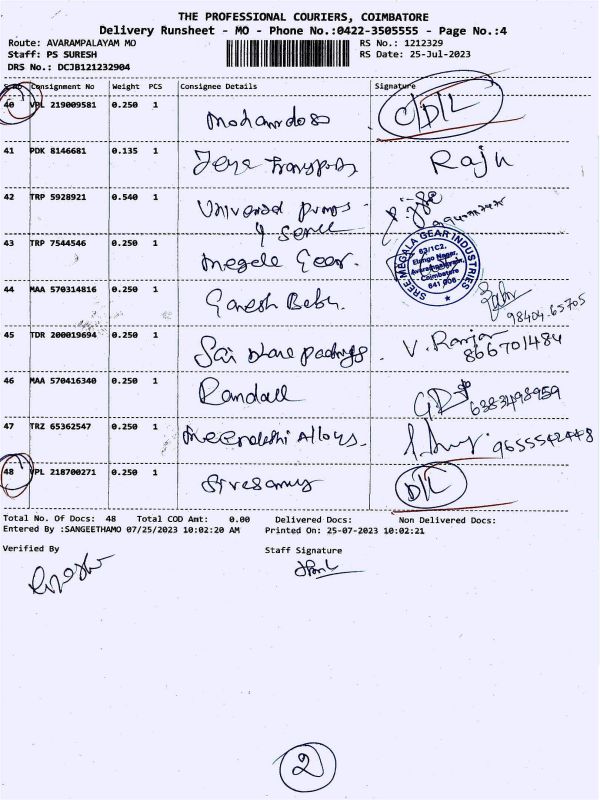 THE PROFESSIONAL COURIERS, COIMBATORE
Delivery Runsheet - MO - Phone No.:0422-3505555 - Page No.:4
Route: AVARAMPALAYAM MO
RS No.: 1212329
Staff: PS SURESH
RS Date: 25-Jul-2023
DRS No.: DCJB1212232904
S.No Consignment No Weight PCS Consignee Details Signature
40 VPL 219009581 0.250 1 Mohandoss C/D/L
41 PDK 8146681 0.135 1 Jaya Transports Raju
42 TRP 5928921 0.540 1 Universal Pumps
& Service
43 TRP 7544546 0.250 1 Megala Gear.
SREE MEGALA GEAR INDUSTRIES
63/1C2,
Elango Nagar,
Avarampalayam,
Coimbatore
641 006
44 MAA 570314816 0.250 1 Ganesh Babu. 98404.65705
45 TDR 200019694 0.250 1 Sai Packings. V. Ranjan
866701484
46 MAA 570416340 0.250 1 Randall 6383498959
47 TRZ 65362547 0.250 1 Meenakshi Alloys. 9655542448
48 VPL 218700271 0.250 1 Sivasamy D/L
Total No. Of Docs: 48 Total COD Amt: 0.00 Delivered Docs: Non Delivered Docs:
Entered By :SANGEETHAMO 07/25/2023 10:02:20 AM Printed On: 25-07-2023 10:02:21
Verified By Staff Signature
2